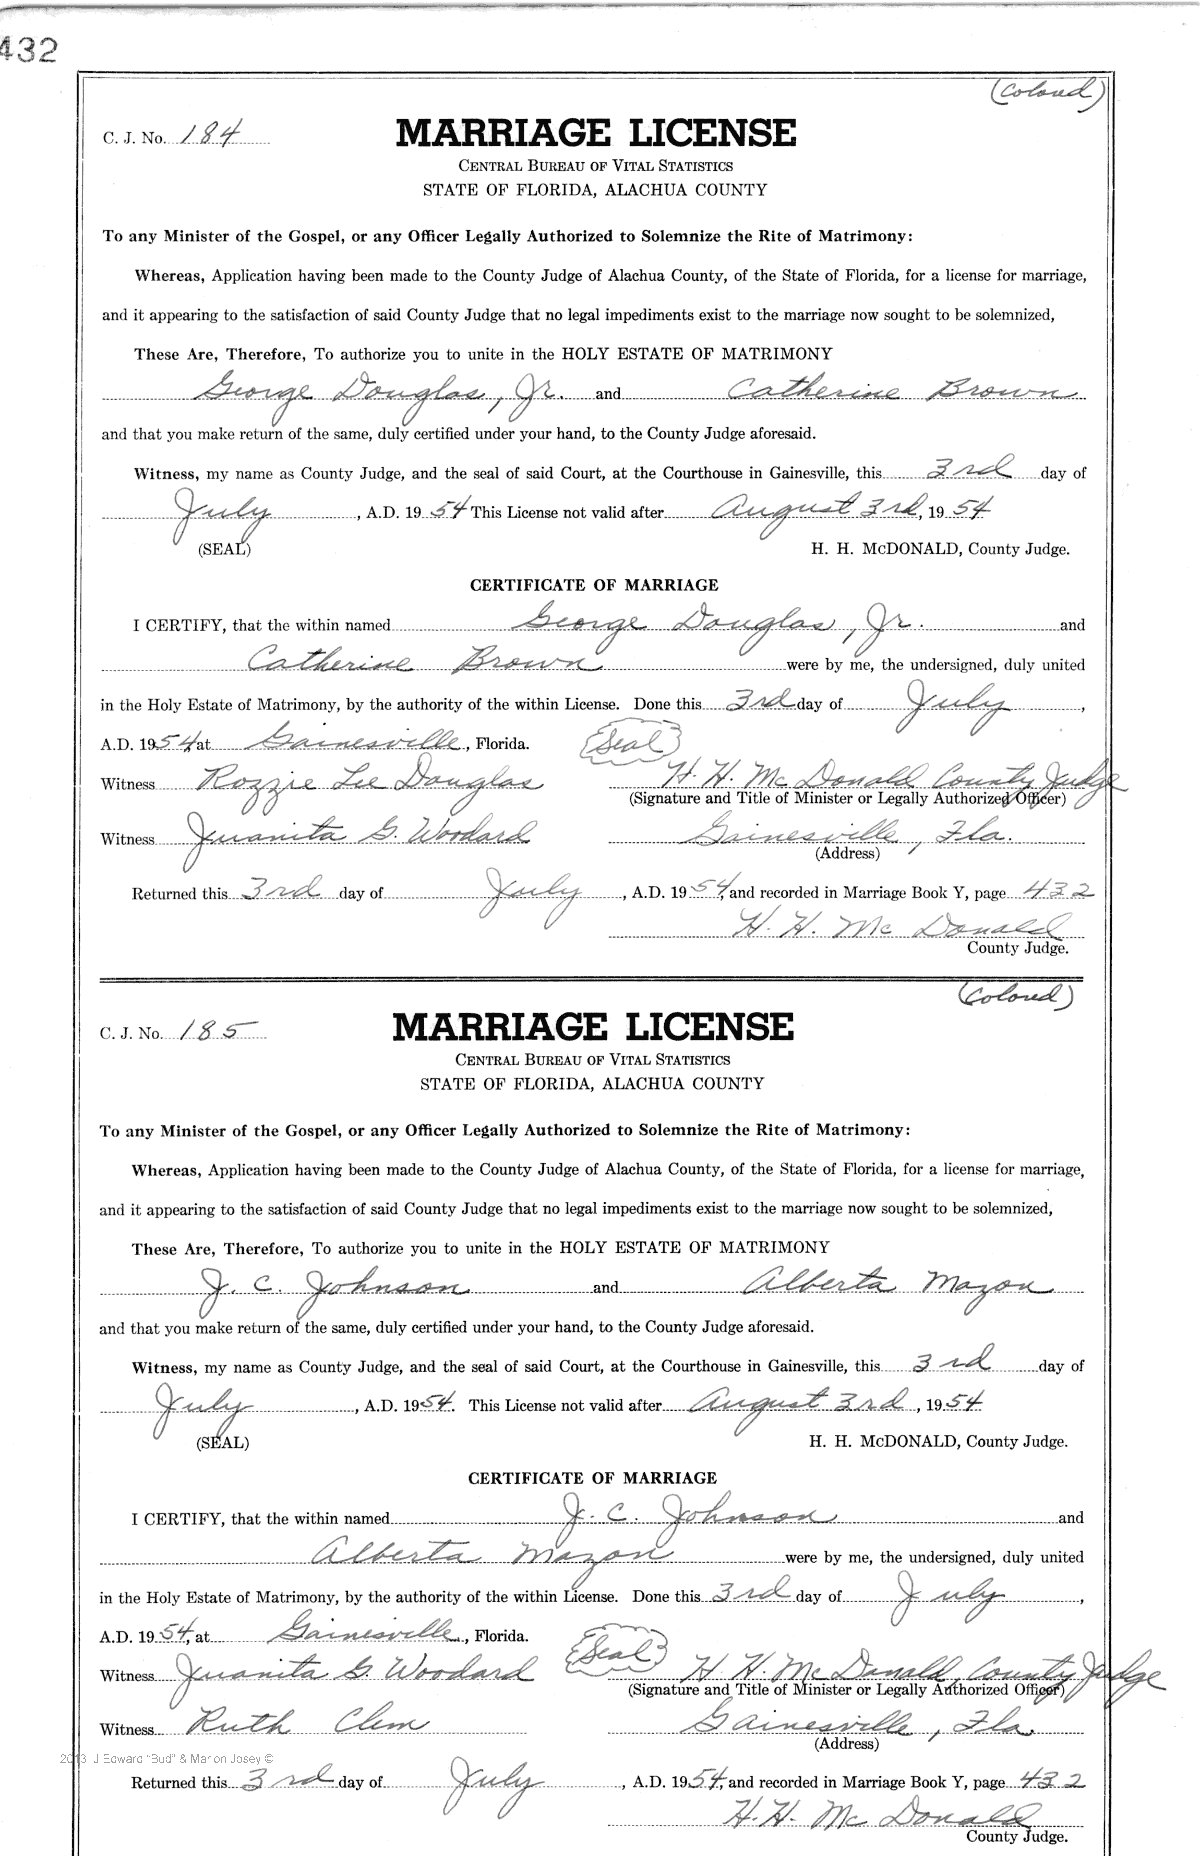 432
(Colored)
C. J. No. 184
MARRIAGE LICENSE
CENTRAL BUREAU OF VITAL STATISTICS
STATE OF FLORIDA, ALACHUA COUNTY
To any Minister of the Gospel, or any Officer Legally Authorized to Solemnize the Rite of Matrimony:
Whereas, Application having been made to the County Judge of Alachua County, of the State of Florida, for a license for marriage,
and it appearing to the satisfaction of said County Judge that no legal impediments exist to the marriage now sought to be solemnized,
These Are, Therefore, To authorize you to unite in the HOLY ESTATE OF MATRIMONY
George Douglas, Jr. and Catherine Brown
and that you make return of the same, duly certified under your hand, to the County Judge aforesaid.
Witness, my name as County Judge, and the seal of said Court, at the Courthouse in Gainesville, this 3rd day of
July, A.D. 19 54 This License not valid after August 3rd, 19 54
(SEAL) H. H. McDONALD, County Judge.
CERTIFICATE OF MARRIAGE
I CERTIFY, that the within named George Douglas, Jr. and
Catherine Brown were by me, the undersigned, duly united
in the Holy Estate of Matrimony, by the authority of the within License. Done this 3rd day of July,
A.D. 1954 at Gainesville, Florida. (Seal)
Witness Rozzie Lee Douglas H. H. McDonald County Judge
(Signature and Title of Minister or Legally Authorized Officer)
Witness Juanita G. Woodard Gainesville, Fla.
(Address)
Returned this 3rd day of July, A.D. 1954, and recorded in Marriage Book Y, page 432
H. H. McDonald
County Judge.
(Colored)
C. J. No. 185
MARRIAGE LICENSE
CENTRAL BUREAU OF VITAL STATISTICS
STATE OF FLORIDA, ALACHUA COUNTY
To any Minister of the Gospel, or any Officer Legally Authorized to Solemnize the Rite of Matrimony:
Whereas, Application having been made to the County Judge of Alachua County, of the State of Florida, for a license for marriage,
and it appearing to the satisfaction of said County Judge that no legal impediments exist to the marriage now sought to be solemnized,
These Are, Therefore, To authorize you to unite in the HOLY ESTATE OF MATRIMONY
J. C. Johnson and Alberta Mazon
and that you make return of the same, duly certified under your hand, to the County Judge aforesaid.
Witness, my name as County Judge, and the seal of said Court, at the Courthouse in Gainesville, this 3rd day of
July, A.D. 1954. This License not valid after August 3rd, 1954
(SEAL) H. H. McDONALD, County Judge.
CERTIFICATE OF MARRIAGE
I CERTIFY, that the within named J. C. Johnson and
Alberta Mazon were by me, the undersigned, duly united
in the Holy Estate of Matrimony, by the authority of the within License. Done this 3rd day of July,
A.D. 1954, at Gainesville, Florida. (Seal)
Witness Juanita G. Woodard H. H. McDonald, County Judge
(Signature and Title of Minister or Legally Authorized Officer)
Witness Ruth Clem Gainesville, Fla.
(Address)
2013 J Edward "Bud" & Marion Josey ©
Returned this 3rd day of July, A.D. 1954, and recorded in Marriage Book Y, page 432
H. H. McDonald
County Judge.